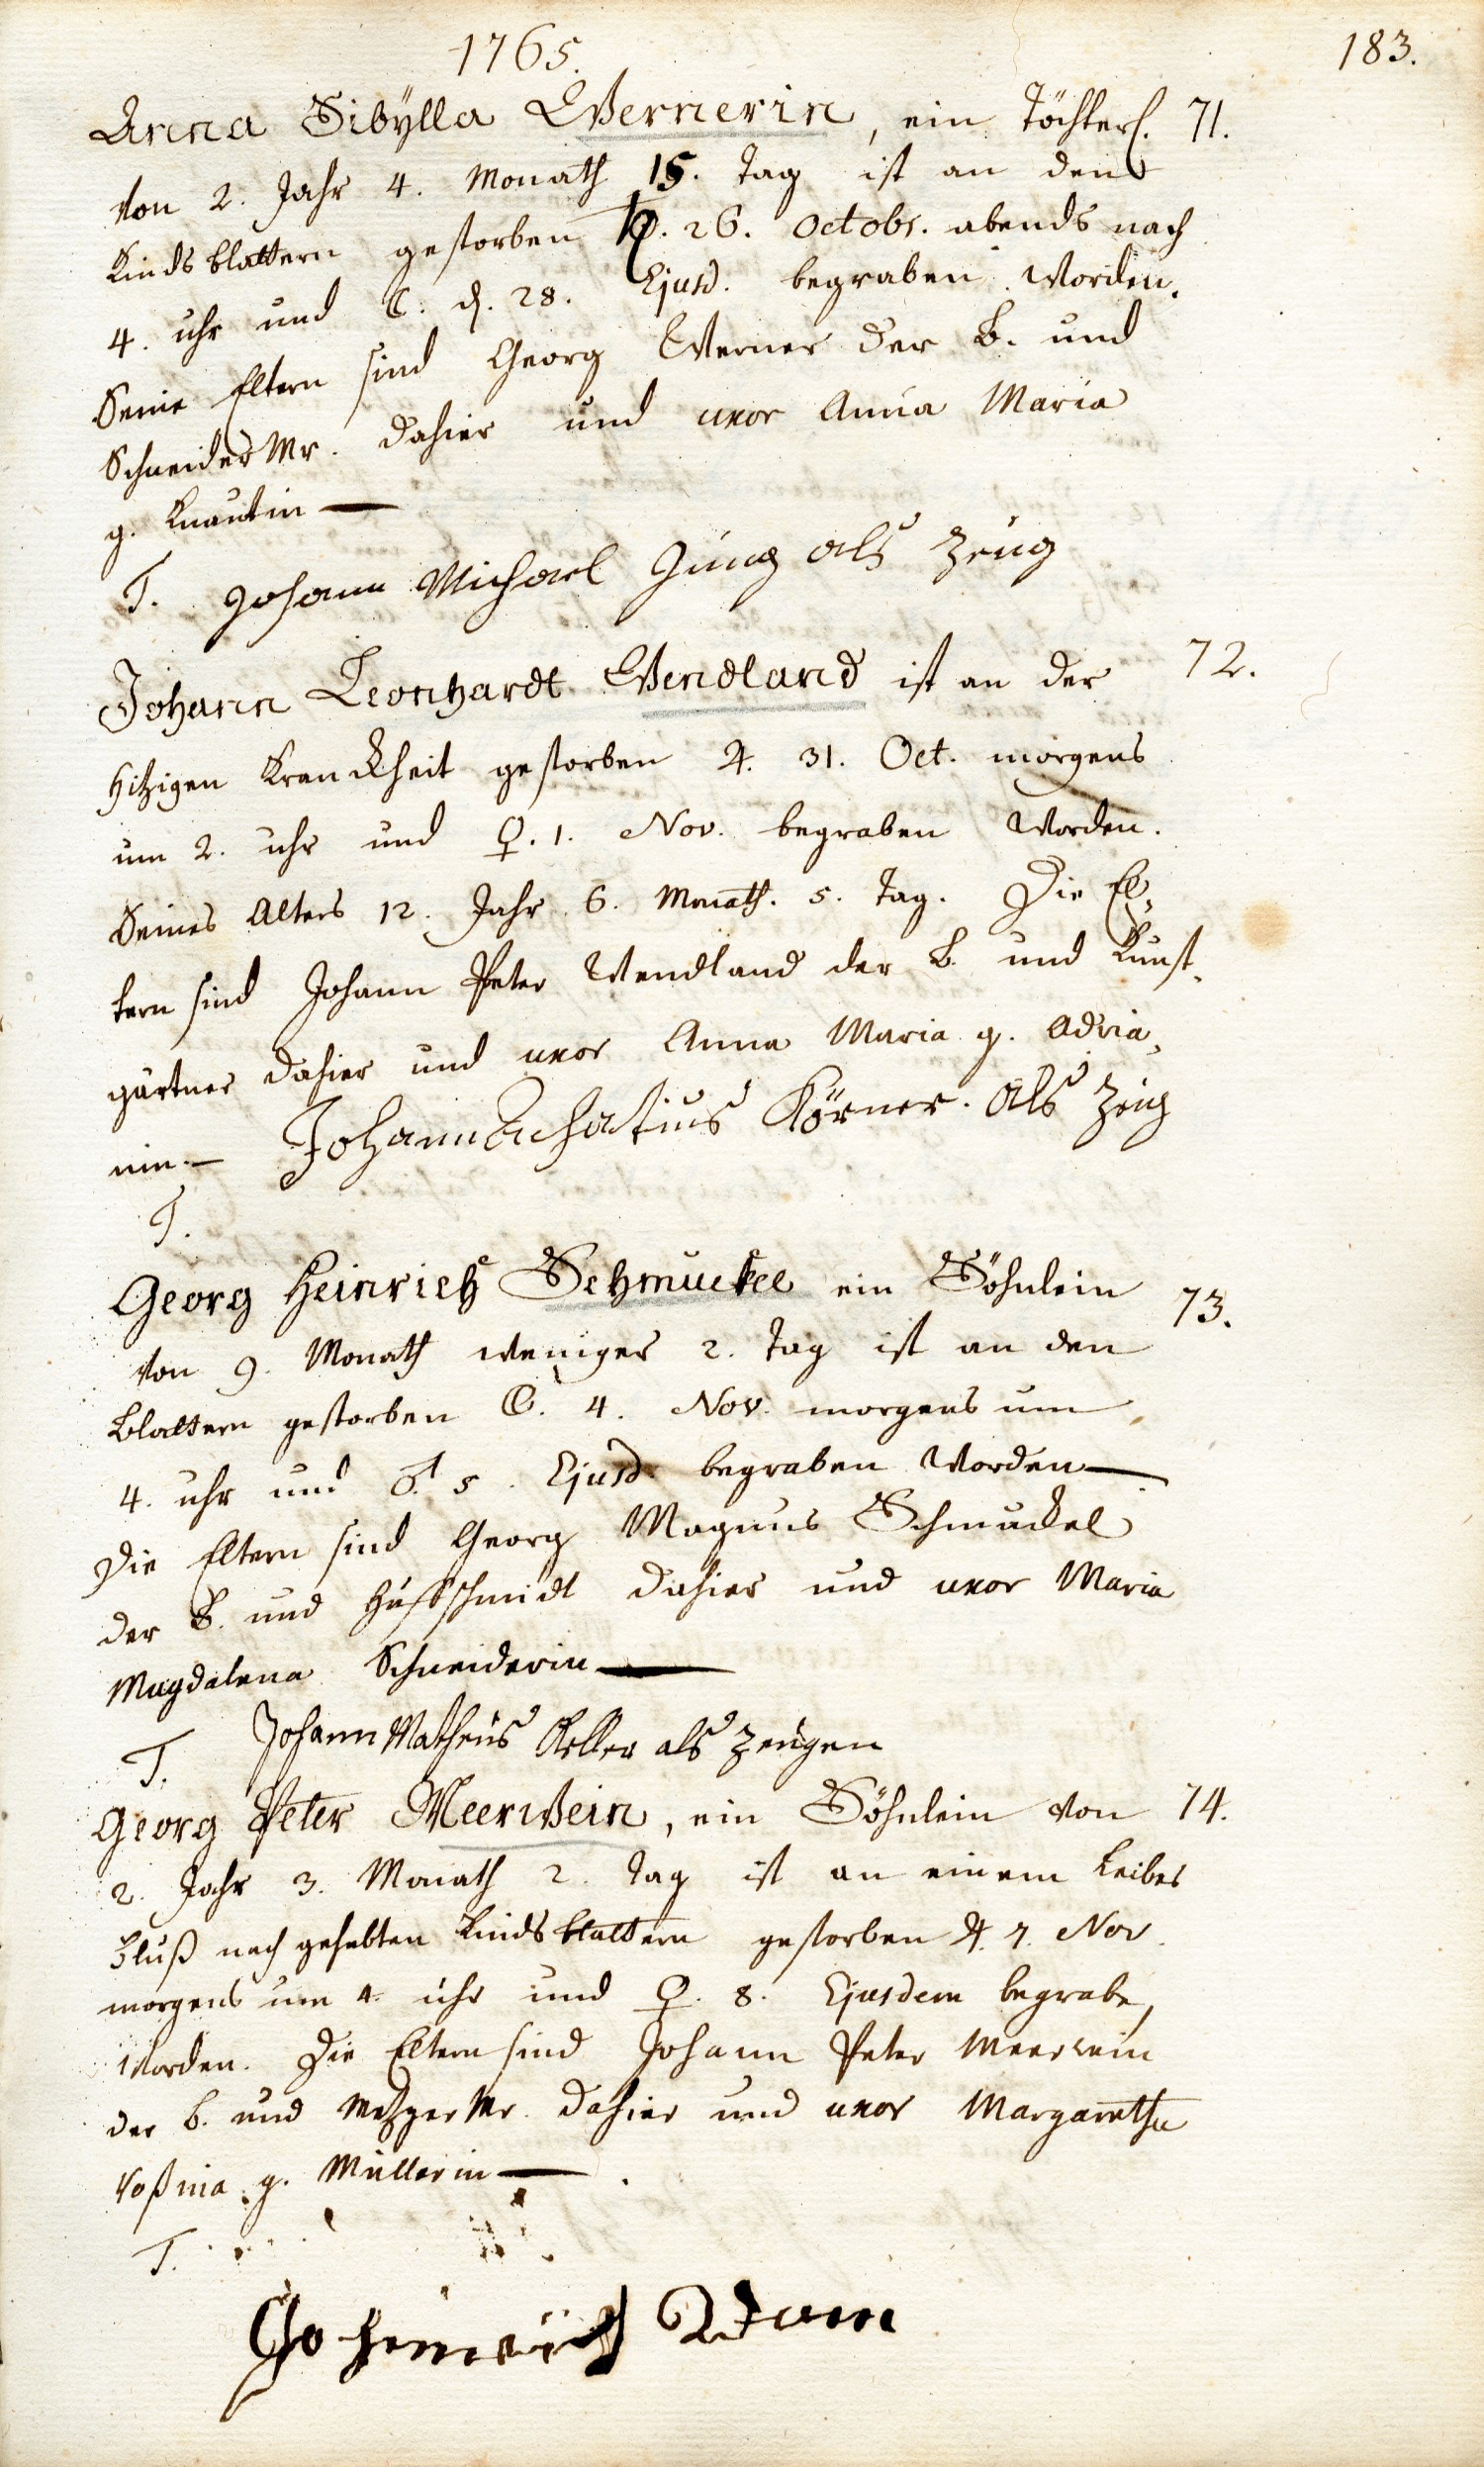 1765.
183.
Anna Sibÿlla Wernerin, ein Töchterl. 71.
von 2. Jahr 4. Monath 15. Tag ist an den
Kindsblattern gestorben ♄. 26. Octobr. abends nach
4. uhr und ☾. d. 28. Ejusd. begraben worden.
Seine Eltern sind Georg Werner der B. und
Schneider Mr. dahier und uxor Anna Maria
g. Knautin —
T. Johann Michael Jung als Zeug
Johann Leonhardt Wendland ist an der 72.
hitzigen Kranckheit gestorben ♃. 31. Oct. morgens
um 2. uhr und ♀. 1. Nov. begraben worden.
Seines Alters 12. Jahr 6. Monath. 5. Tag. Die El-
tern sind Johann Peter Wendland der B. und Kunst-
gärtner dahier und uxor Anna Maria g. Adria-
nin. — Johann Achatius Körner. als Zeug
T.
Georg Heinrich Schmuckel ein Söhnlein 73.
von 9. Monath weniger 2. Tag ist an den
Blattern gestorben ☾. 4. Nov. morgens um
4. uhr und ♂. 5. Ejusd. begraben worden —
Die Eltern sind Georg Magnus Schmuckel
der B. und Hufschmidt dahier und uxor Maria
Magdalena Schneiderin —
T. Johann Matheus Keller als Zeugen
Georg Peter Meerwein, ein Söhnlein von 74.
2. Jahr 3. Monath 2. Tag ist an einem Leibes
Fluß nach gehabten Kindsblattern gestorben ♃. 7. Nov.
morgens um 4. uhr und ♀. 8. Ejusdem begrabe,
worden. Die Eltern sind Johann Peter Meerwein
der B. und Metzger Mr. dahier und uxor Margaretha
g. Müllerin —
T.